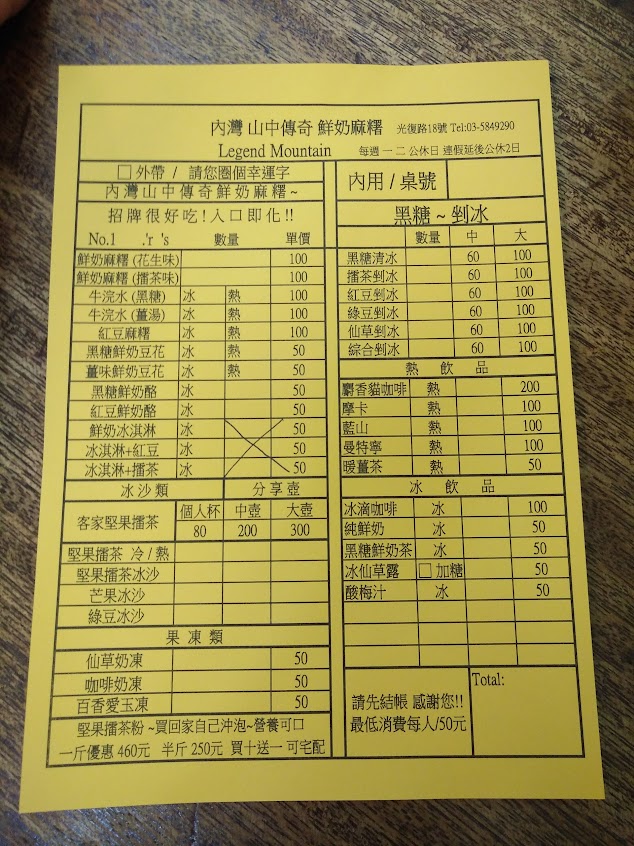 內灣 山中傳奇 鮮奶麻糬 光復路18號 Tel:03-5849290
Legend Mountain 每週 一 二 公休日 連假延後公休2日
□外帶 / 請您圈個幸運字
內灣山中傳奇鮮奶麻糬~
招牌很好吃!入口即化!!
No.1 .'r 's 數量 單價
鮮奶麻糬 (花生味) 100
鮮奶麻糬 (擂茶味) 100
牛浣水 (黑糖) 冰 熱 100
牛浣水 (薑湯) 冰 熱 100
紅豆麻糬 冰 熱 100
黑糖鮮奶豆花 冰 熱 50
薑味鮮奶豆花 冰 熱 50
黑糖鮮奶酪 冰 50
紅豆鮮奶酪 冰 50
鮮奶冰淇淋 冰 50
冰淇淋+紅豆 冰 50
冰淇淋+擂茶 冰 50
冰沙類 分享壺
客家堅果擂茶 個人杯 中壺 大壺
80 200 300
堅果擂茶 冷/熱
堅果擂茶冰沙
芒果冰沙
綠豆冰沙
果凍類
仙草奶凍 50
咖啡奶凍 50
百香愛玉凍 50
堅果擂茶粉 ~買回家自己沖泡~營養可口
一斤優惠 460元 半斤 250元 買十送一 可宅配
內用 / 桌號
黑糖 ~ 剉冰
數量 中 大
黑糖清冰 60 100
擂茶剉冰 60 100
紅豆剉冰 60 100
綠豆剉冰 60 100
仙草剉冰 60 100
綜合剉冰 60 100
熱飲品
麝香貓咖啡 熱 200
摩卡 熱 100
藍山 熱 100
曼特寧 熱 100
暖薑茶 熱 50
冰飲品
冰滴咖啡 冰 100
純鮮奶 冰 50
黑糖鮮奶茶 冰 50
冰仙草露 □加糖 50
酸梅汁 冰 50
請先結帳 感謝您!!
最低消費每人/50元
Total: